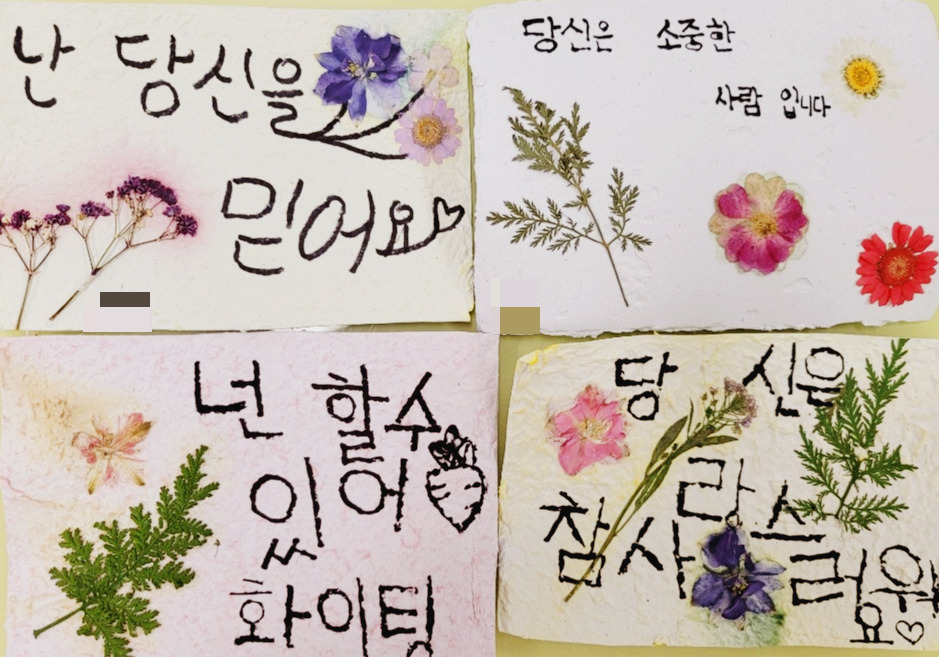 난 당신을
믿어요
당신은 소중한
사람 입니다
넌 할수
있어
화이팅
당신은
참 사랑스
러워요